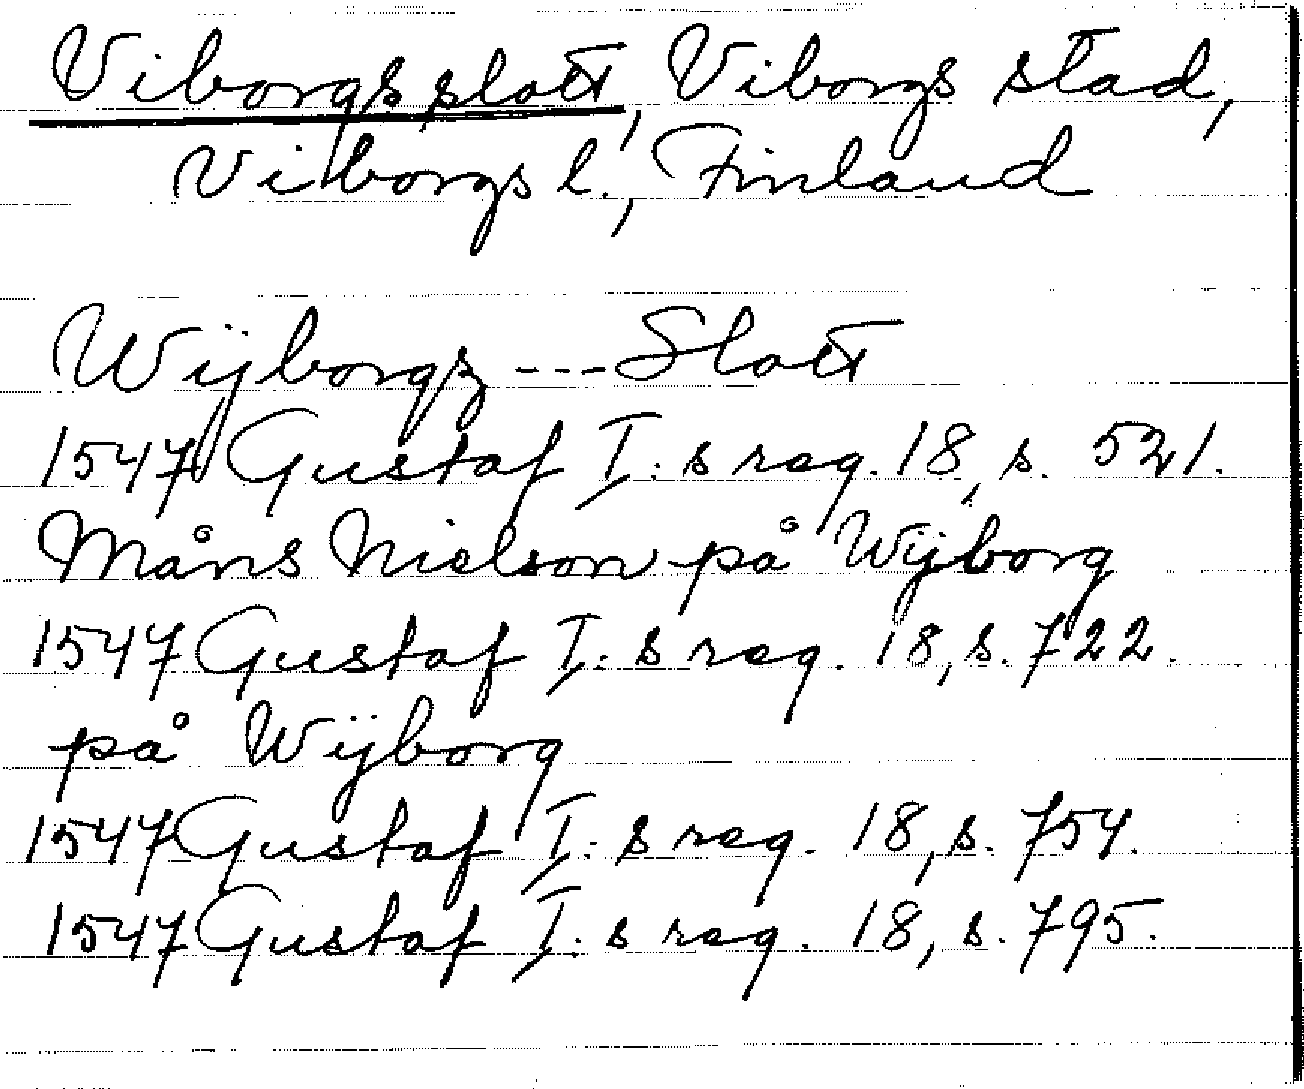 Viborgs slott, Viborgs stad,
Viborgs l., Finland
Wijborgz --- Slott
1547 Gustaf I:s reg. 18, s. 521.
Måns Nielson på Wijborg
1547 Gustaf I:s reg. 18, s. 722.
på Wijborg
1547 Gustaf I:s reg. 18, s. 754.
1547 Gustaf I:s reg. 18, s. 795.